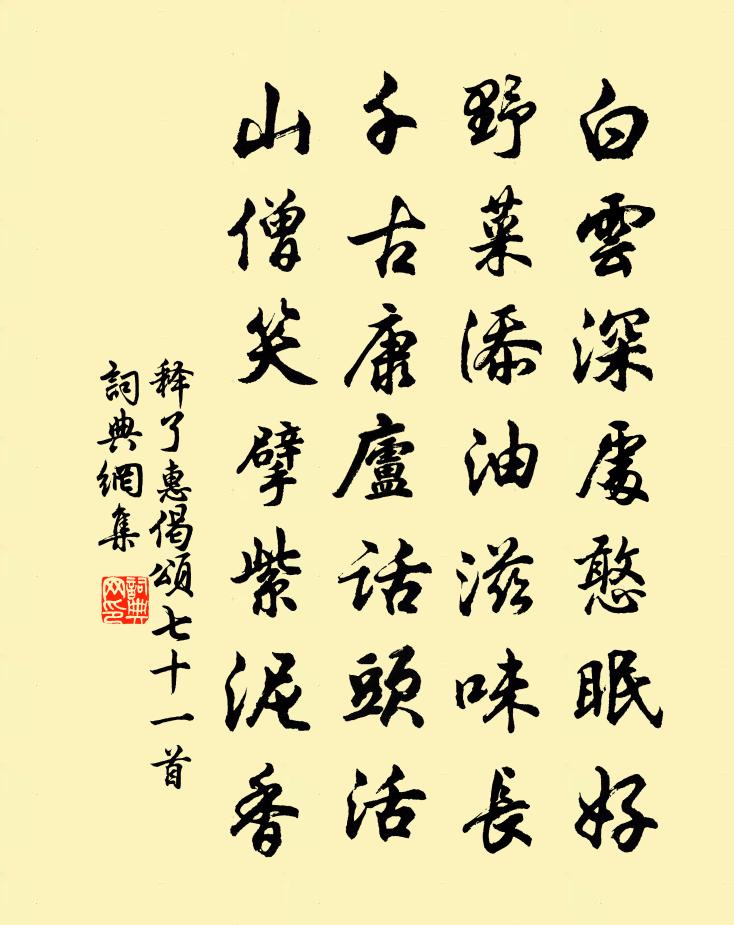 白雲深處憨眠好
野菜添油滋味長
千古康廬話頭活
山僧笑擘紫泥香
释了惠偈頌七十一首
詞典網集
詞典網印